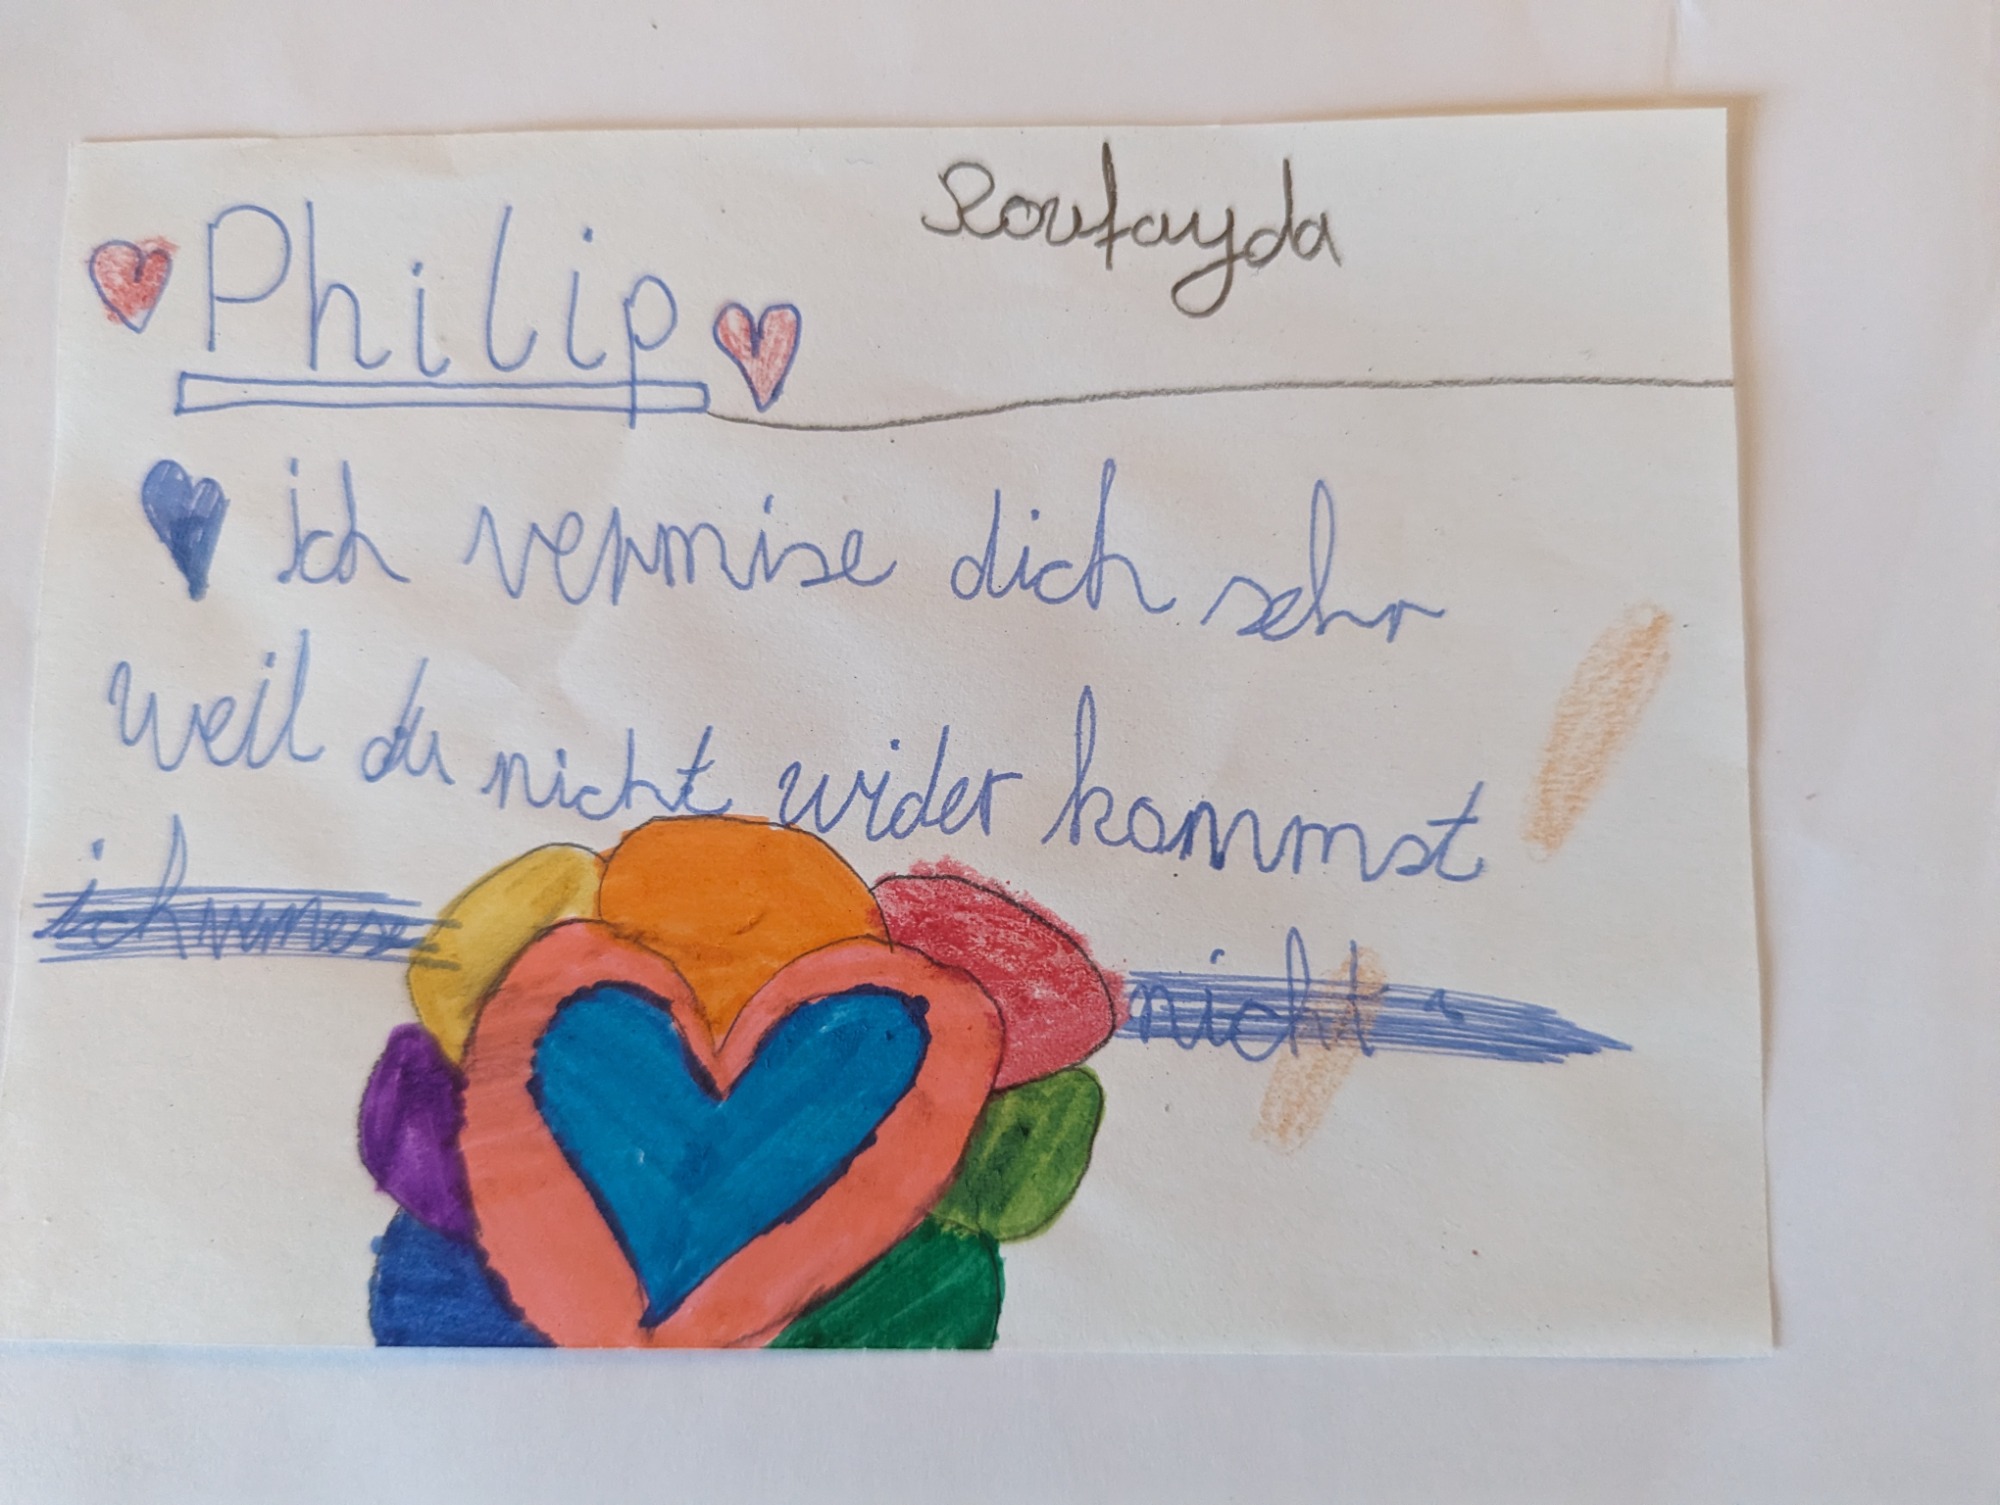 Roufayda
Philip
ich vermise dich sehr
weil du nicht wider kommst
ich
nicht